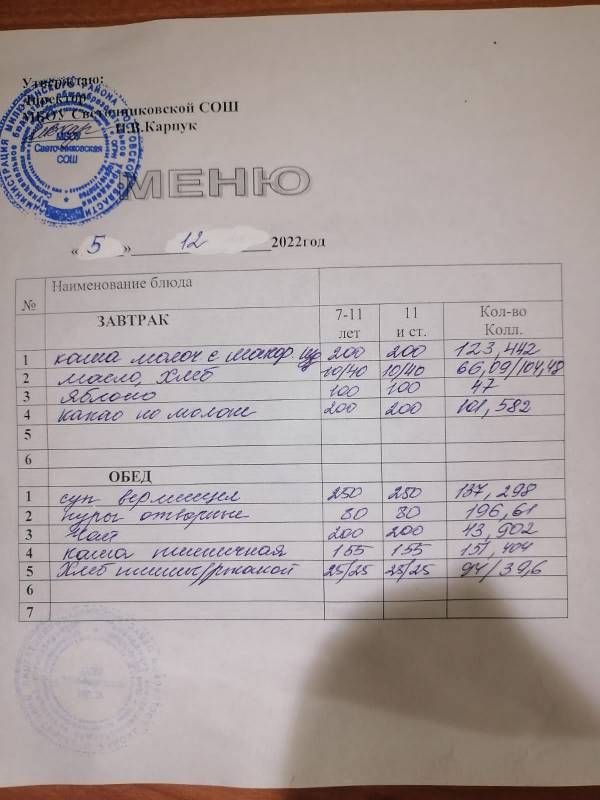 Утверждаю:
Директор
МБОУ Светочниковской СОШ
Н.В.Карпук
МБОУ
Светочниковская
СОШ
МЕНЮ
« 5 » 12 2022год
№ Наименование блюда
ЗАВТРАК 7-11 лет 11 и ст. Кол-во Колл.
1 каша молоч с макар. изд 200 200 123,442
2 масло, хлеб 10/40 10/40 66,09/104,48
3 яблоко 100 100 47
4 какао на молоке 200 200 101,582
5
6
ОБЕД
1 суп вермишел 250 250 137,298
2 куры отварные 80 80 196,61
3 Чай 200 200 43,902
4 каша пшеничная 155 155 151,404
5 Хлеб пшенич/ржаной 25/25 25/25 94/39,6
6
7